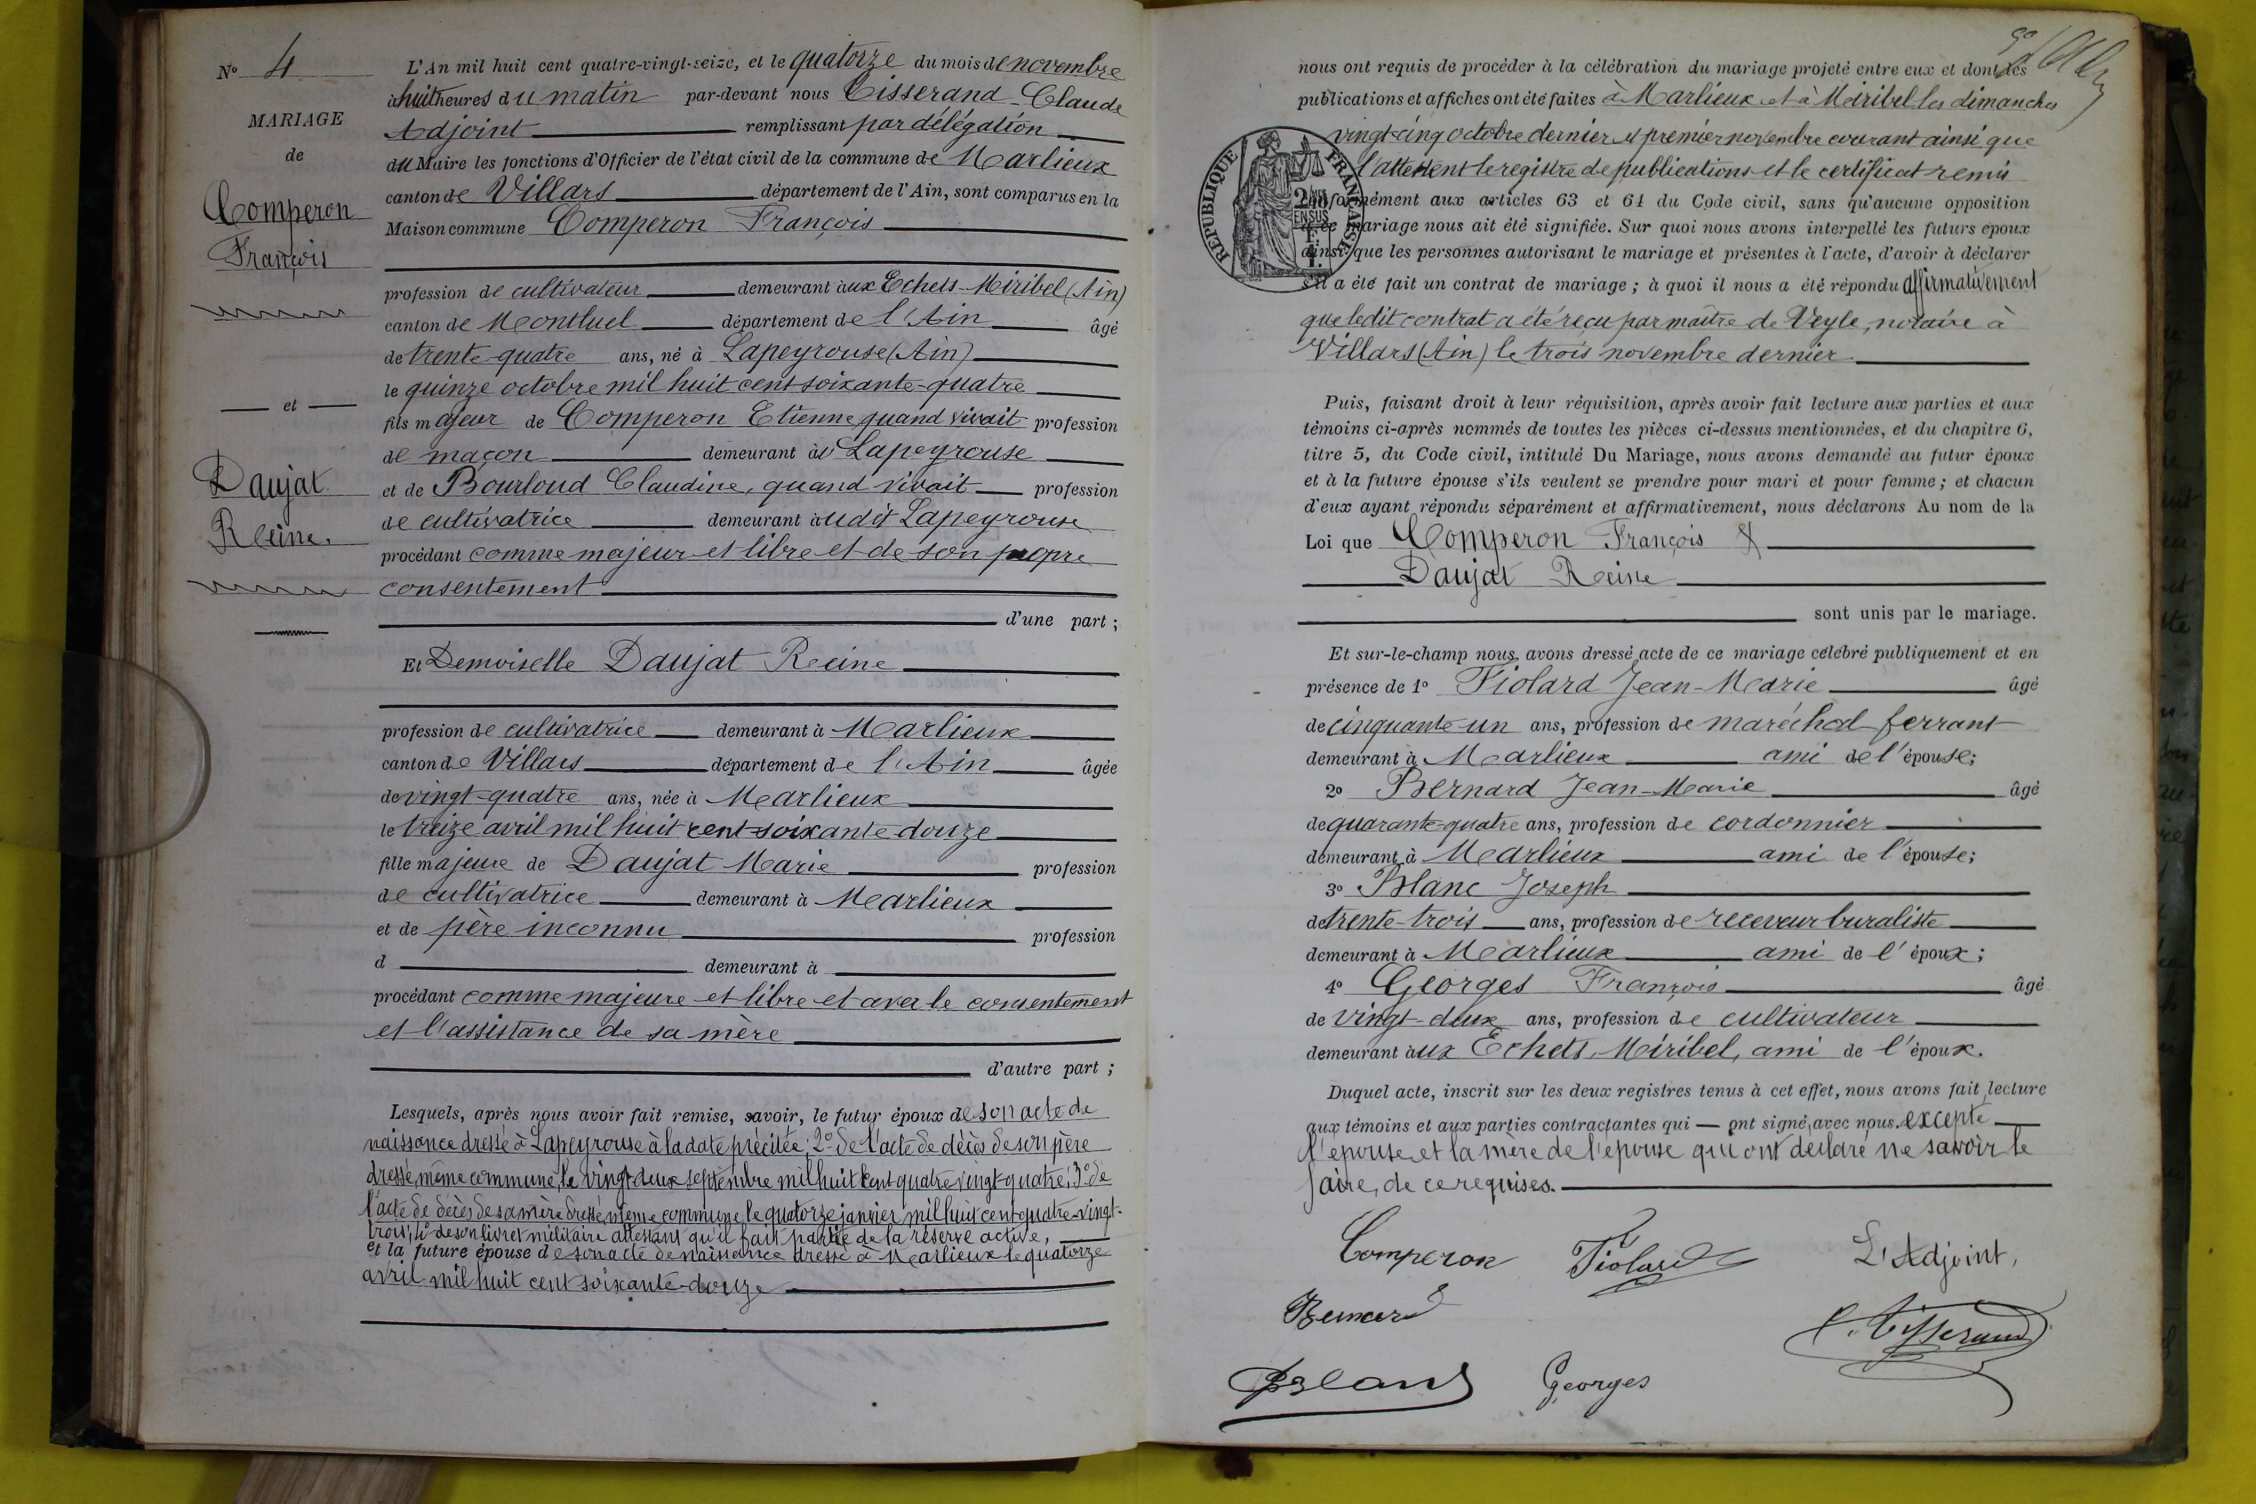 N° 4
MARIAGE
de
Comperon
François
et
Daujat
Reine.
L'An mil huit cent quatre-vingt-seize, et le quatorze du mois de novembre
à huit heures du matin par-devant nous Tisserand Claude
Adjoint remplissant par délégation
du Maire les fonctions d'Officier de l'état civil de la commune de Marlieux
canton de Villars département de l'Ain, sont comparus en la
Maison commune Comperon François
profession de cultivateur demeurant aux Echets-Miribel (Ain)
canton de Montluel département de l'Ain âgé
de trente-quatre ans, né à Lapeyrouse (Ain)
le quinze octobre mil huit cent soixante-quatre
fils majeur de Comperon Etienne quand vivait profession
de maçon demeurant à Lapeyrouse
et de Bourloud Claudine, quand vivait profession
de cultivatrice demeurant audit Lapeyrouse
procédant comme majeur et libre et de son propre
consentement
d'une part ;
Et Demoiselle Daujat Reine
profession de cultivatrice demeurant à Marlieux
canton de Villars département de l'Ain âgée
de vingt-quatre ans, née à Marlieux
le treize avril mil huit cent soixante-douze
fille majeure de Daujat Marie profession
de cultivatrice demeurant à Marlieux
et de père inconnu profession
d demeurant à
procédant comme majeure et libre et avec le consentement
et l'assistance de sa mère
d'autre part ;
Lesquels, après nous avoir fait remise, savoir, le futur époux de son acte de
naissance dressé à Lapeyrouse à la date précitée ; 2° de l'acte de décès de son père
dressé, même commune, le vingt-deux septembre mil huit cent quatre vingt-quatre ; 3° de
l'acte de décès de sa mère dressé même commune le quatorze janvier mil huit cent quatre-vingt-
trois ; 4° de son livret militaire attestant qu'il fait partie de la réserve active,
et la future épouse de son acte de naissance dressé à Marlieux le quatorze
avril mil huit cent soixante-douze
nous ont requis de procéder à la célébration du mariage projeté entre eux et dont les
publications et affiches ont été faites à Marlieux et à Miribel les dimanches
vingt-cinq octobre dernier et premier novembre courant ainsi que
l'attestent le registre de publications et le certificat remis
RÉPUBLIQUE FRANÇAISE
conformément aux articles 63 et 64 du Code civil, sans qu'aucune opposition
à ce mariage nous ait été signifiée. Sur quoi nous avons interpellé les futurs époux
ainsi que les personnes autorisant le mariage et présentes à l'acte, d'avoir à déclarer
s'il a été fait un contrat de mariage ; à quoi il nous a été répondu affirmativement
que ledit contrat a été reçu par maître de Veyle, notaire à
Villars (Ain) le trois novembre dernier
Puis, faisant droit à leur réquisition, après avoir fait lecture aux parties et aux
témoins ci-après nommés de toutes les pièces ci-dessus mentionnées, et du chapitre 6,
titre 5, du Code civil, intitulé Du Mariage, nous avons demandé au futur époux
et à la future épouse s'ils veulent se prendre pour mari et pour femme ; et chacun
d'eux ayant répondu séparément et affirmativement, nous déclarons Au nom de la
Loi que Comperon François &
Daujat Reine
sont unis par le mariage.
Et sur-le-champ nous avons dressé acte de ce mariage célébré publiquement et en
présence de 1° Tiolard Jean-Marie âgé
de cinquante-un ans, profession de maréchal ferrant
demeurant à Marlieux ami de l'épouse;
2° Bernard Jean-Marie âgé
de quarante-quatre ans, profession de cordonnier
demeurant à Marlieux ami de l'épouse;
3° Blanc Joseph
de trente-trois ans, profession de receveur buraliste
demeurant à Marlieux ami de l'époux;
4° Georges François âgé
de vingt-deux ans, profession de cultivateur
demeurant aux Echets, Miribel, ami de l'époux.
Duquel acte, inscrit sur les deux registres tenus à cet effet, nous avons fait lecture
aux témoins et aux parties contractantes qui ont signé avec nous. excepté
l'épouse et la mère de l'épouse qui ont déclaré ne savoir le
faire, de ce requises.
Comperon Tiolard L'Adjoint,
Bernard C. Tisserand
Blanc Georges